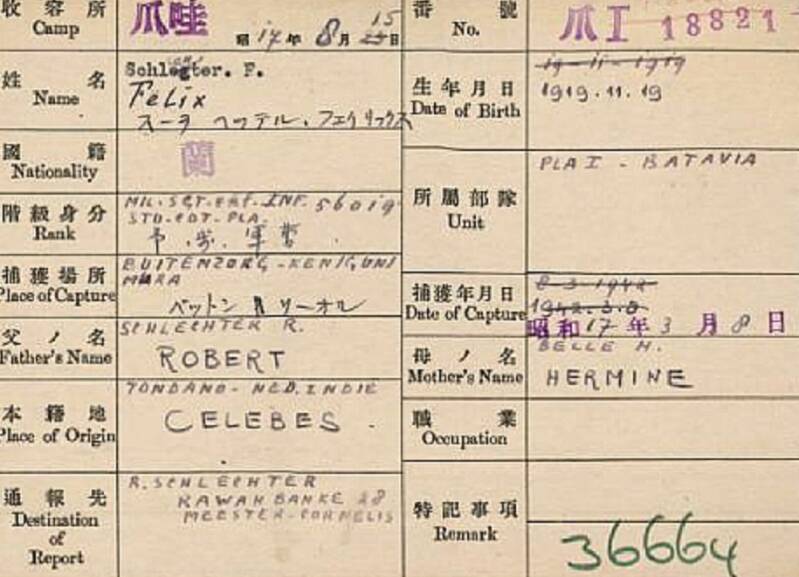 收容所
Camp
爪哇
昭 17 年 8 月 15 日
番號
No.
爪I 18821
姓名
Name
Schlechter. F.
Felix
生年月日
Date of Birth
19-11-1919
1919.11.19
國籍
Nationality
蘭
所屬部隊
Unit
PLA I - BATAVIA
階級身分
Rank
MIL. SGT. INF. 56019
STD. PLA.
捕獲場所
Place of Capture
BUITENZORG -
捕獲年月日
Date of Capture
8-3-1942
1942.3.8
昭和 17 年 3 月 8 日
父ノ名
Father's Name
SCHLECHTER R.
ROBERT
母ノ名
Mother's Name
BELLE H.
HERMINE
本籍地
Place of Origin
TONDANO - NED. INDIE
CELEBES.
職業
Occupation
通報先
Destination
of
Report
R. SCHLECHTER
RAWAH BANKE 28
MEESTER-CORNELIS
特記事項
Remark
36664